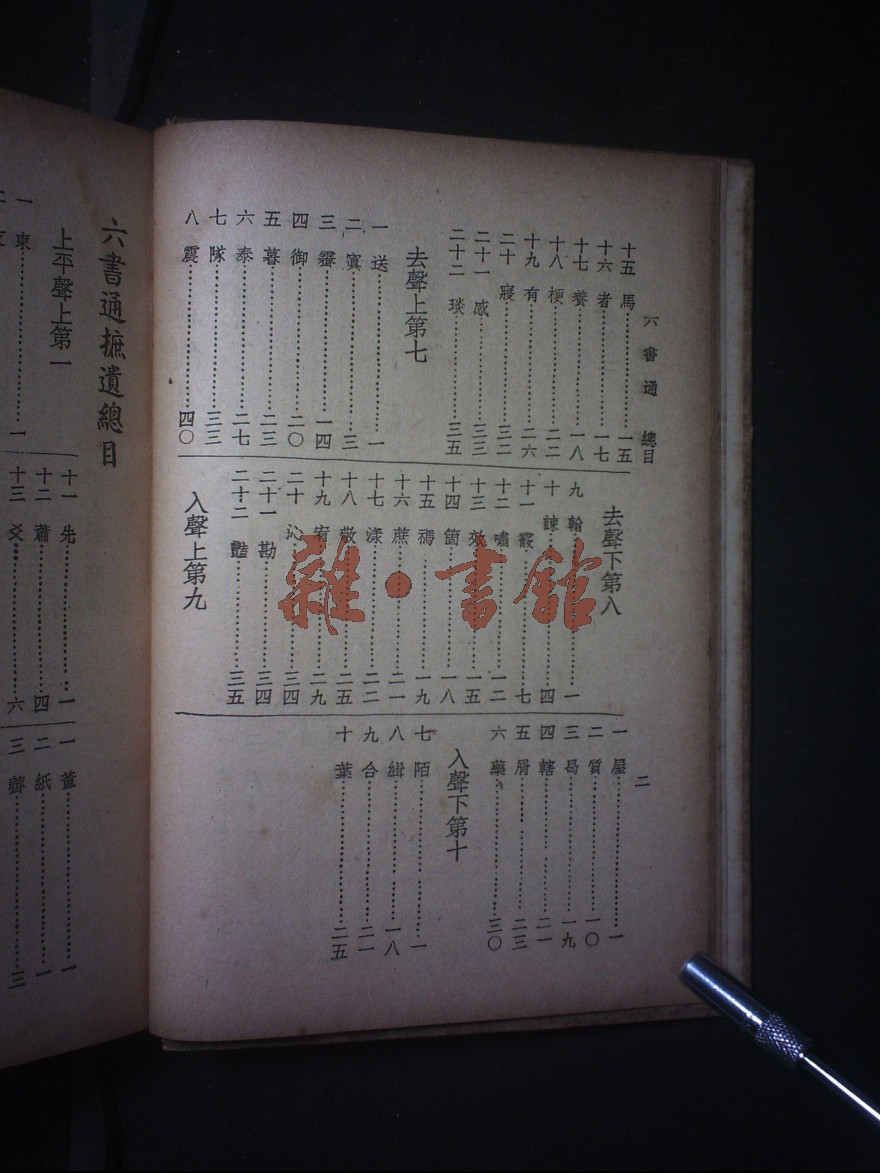 六書通 總目 二
十五 馬……一五
十六 者……一七
十七 養……一八
十八 梗……二二
十九 有……二六
二十 寢……三二
二十一 感……三三
二十二 琰……三五
去聲上第七
一 送……一
二 寘……三
三 霽……一四
四 御……二〇
五 暮……二三
六 泰……二七
七 隊……三三
八 震……四〇
去聲下第八
九 翰……一
十 諫……四
十一 霰……七
十二 嘯……一二
十三 效……一五
十四 箇……一八
十五 禡……一九
十六 蔗……二一
十七 漾……二二
十八 敬……二五
十九 宥……二九
二十 沁……三四
二十一 勘……三四
二十二 豔……三五
入聲上第九
一 屋……一
二 質……一〇
三 曷……一九
四 轄……二一
五 屑……二三
六 藥……三〇
入聲下第十
七 陌……一
八 緝……一八
九 合……二一
十 葉……二五
雜·書館
六書通摭遺總目
上平聲上第一
一 東……一
十一 先……一
十二 蕭……四
十三 爻……六
一 董……一
二 紙……一
三 薺……三